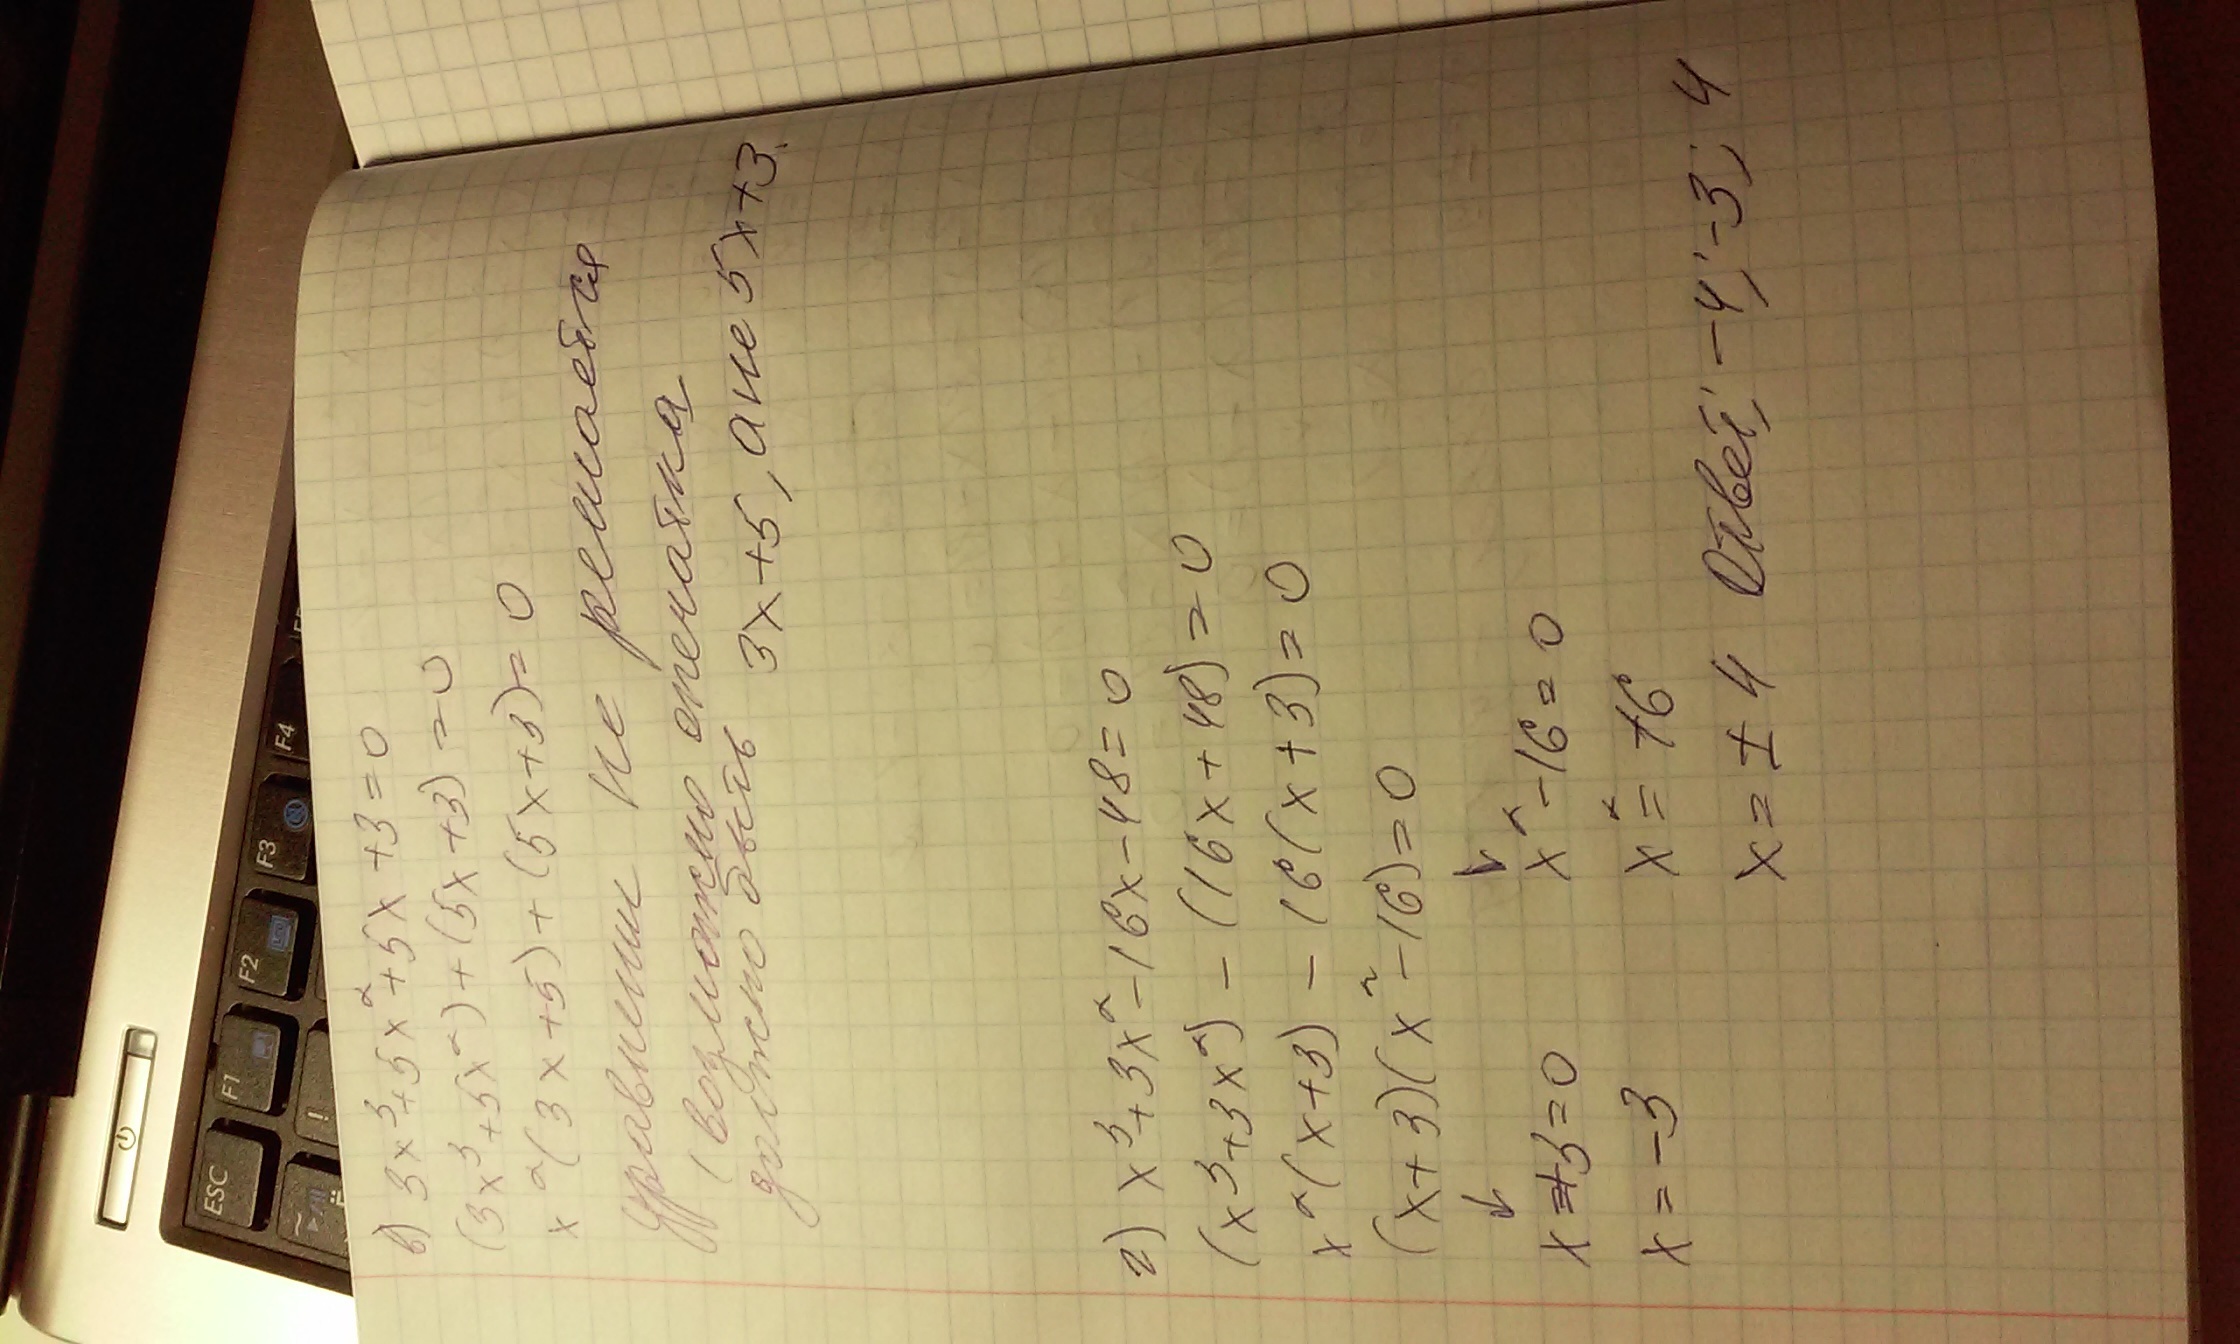 в) 3x³+5x²+5x+3=0
(3x³+5x²)+(5x+3)=0
x²(3x+5)+(5x+3)=0
уравнение не решается
(возможно опечатка
должно быть 3x+5, а не 5x+3.
г) x³+3x²-16x-48=0
(x³+3x²)-(16x+48)=0
x²(x+3)-16(x+3)=0
(x+3)(x²-16)=0
↓ ↓
x+3=0 x²-16=0
x=-3 x²=16
x=±4 Ответ: -4; -3; 4
ESC
F1
F2
F3
F4
!
~